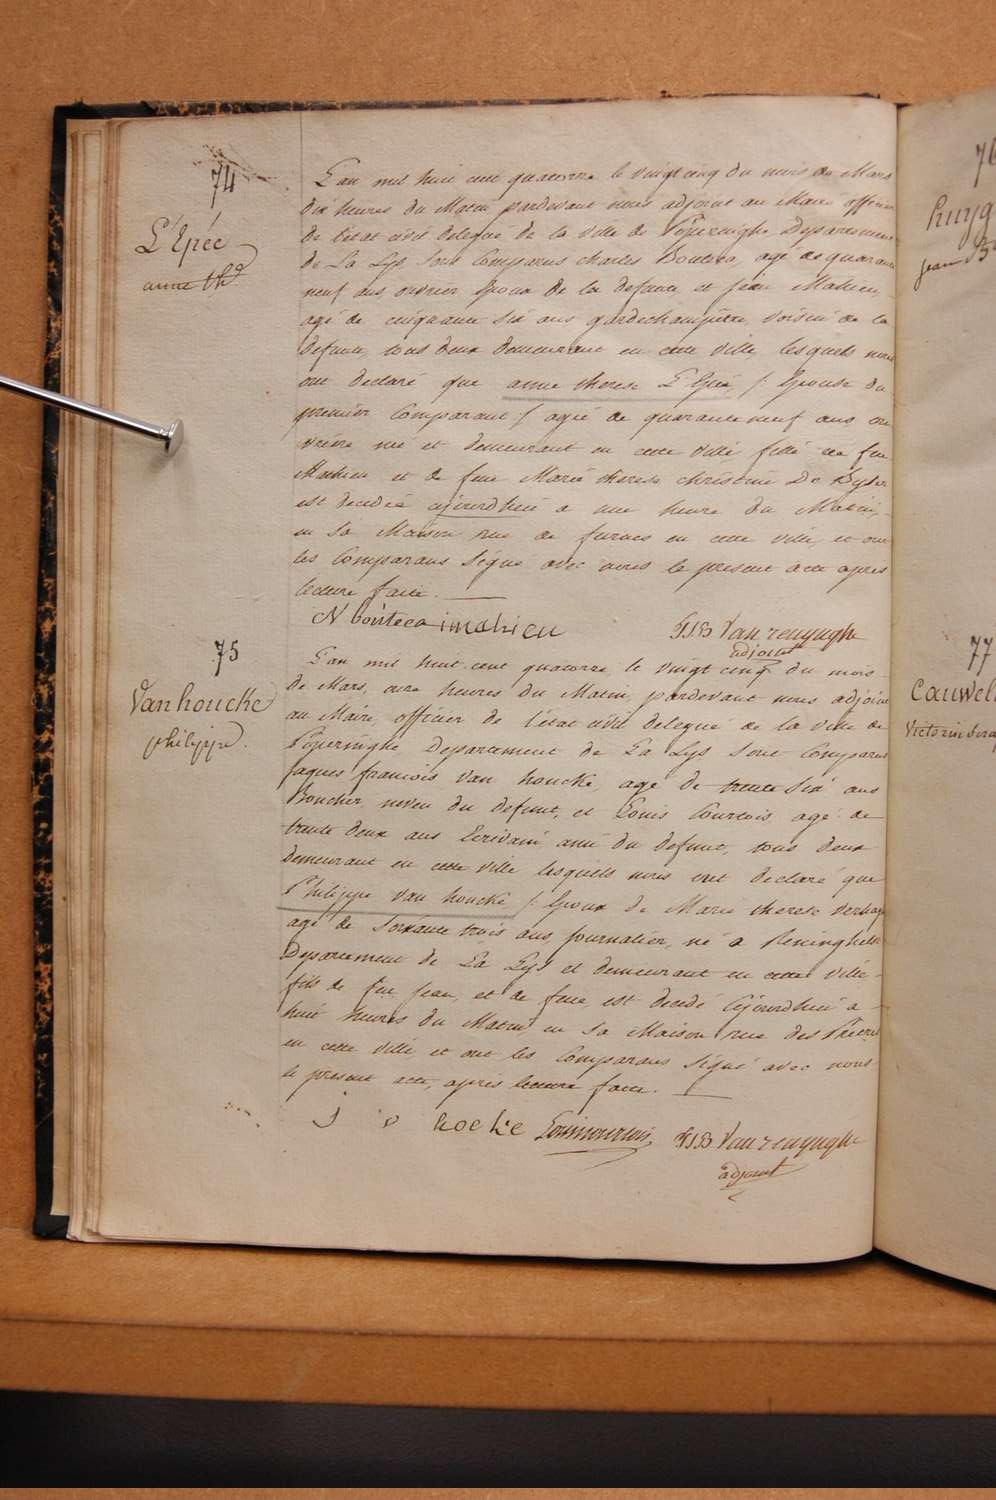 74
L'Epée
anne thse
L'an mil huit cent quatorze le vingt cinq du mois de Mars
dix heures du Matin pardevant nous adjoint au Maire officier
de l'etat civil delegué de la ville de Poperinghe Departement
de La Lys sont Comparus charles Bouteca, agé de quarante
neuf ans ouvrier Epoux de la defunte, et Jean Mahieu,
agé de cinquante six ans gardechampêtre, voisin de la
defunte, tous deux demeurant en cette ville, lesquels nous
ont declaré que anne therese L'Epée, /: Epouse du
premier Comparant / agée de quarante neuf ans ou
vriere née et demeurant en cette ville fille de feu
Mathieu et de feue Marie therese christine De Byser
est decedée cejourd'hui a une heure du Matin,
en sa Maison rue de furnes en cette ville, et ont
les Comparans signé avec nous le present acte apres
lecture faite.
bouteca imahieu
FJB Vanrenynghe
adjoint
75
Vanhoucke
philippe.
L'an mil huit cent quatorze, le vingt cinq du mois
de Mars, onze heures du Matin, pardevant nous adjoint
au Maire, officier de l'etat civil delegué de la ville de
Poperinghe Departement de La Lys sont Comparus
Jaques francois Van houcke, agé de trente six ans
Boucher, neveu du defunt, et Louis Courtois agé de
trente deux ans Ecrivain ami du defunt, tous deux
demeurant en cette ville lesquels nous ont declaré que
Philippe Van houcke /: Epoux de Marie therese
agé de soixante trois ans journalier, né a Reninghelst
Departement de La Lys et demeurant en cette ville,
fils de feu Jean, et de feue, est decedé cejourd'hui a
huit heures du Matin en sa Maison rue des Pretres
en cette ville et ont les Comparans signé avec nous
le present acte, apres lecture faite.
J hocke Louis courtois FJB Vanrenynghe
adjoint
76
Huyg
jean B
77
Cauwel
Victorin